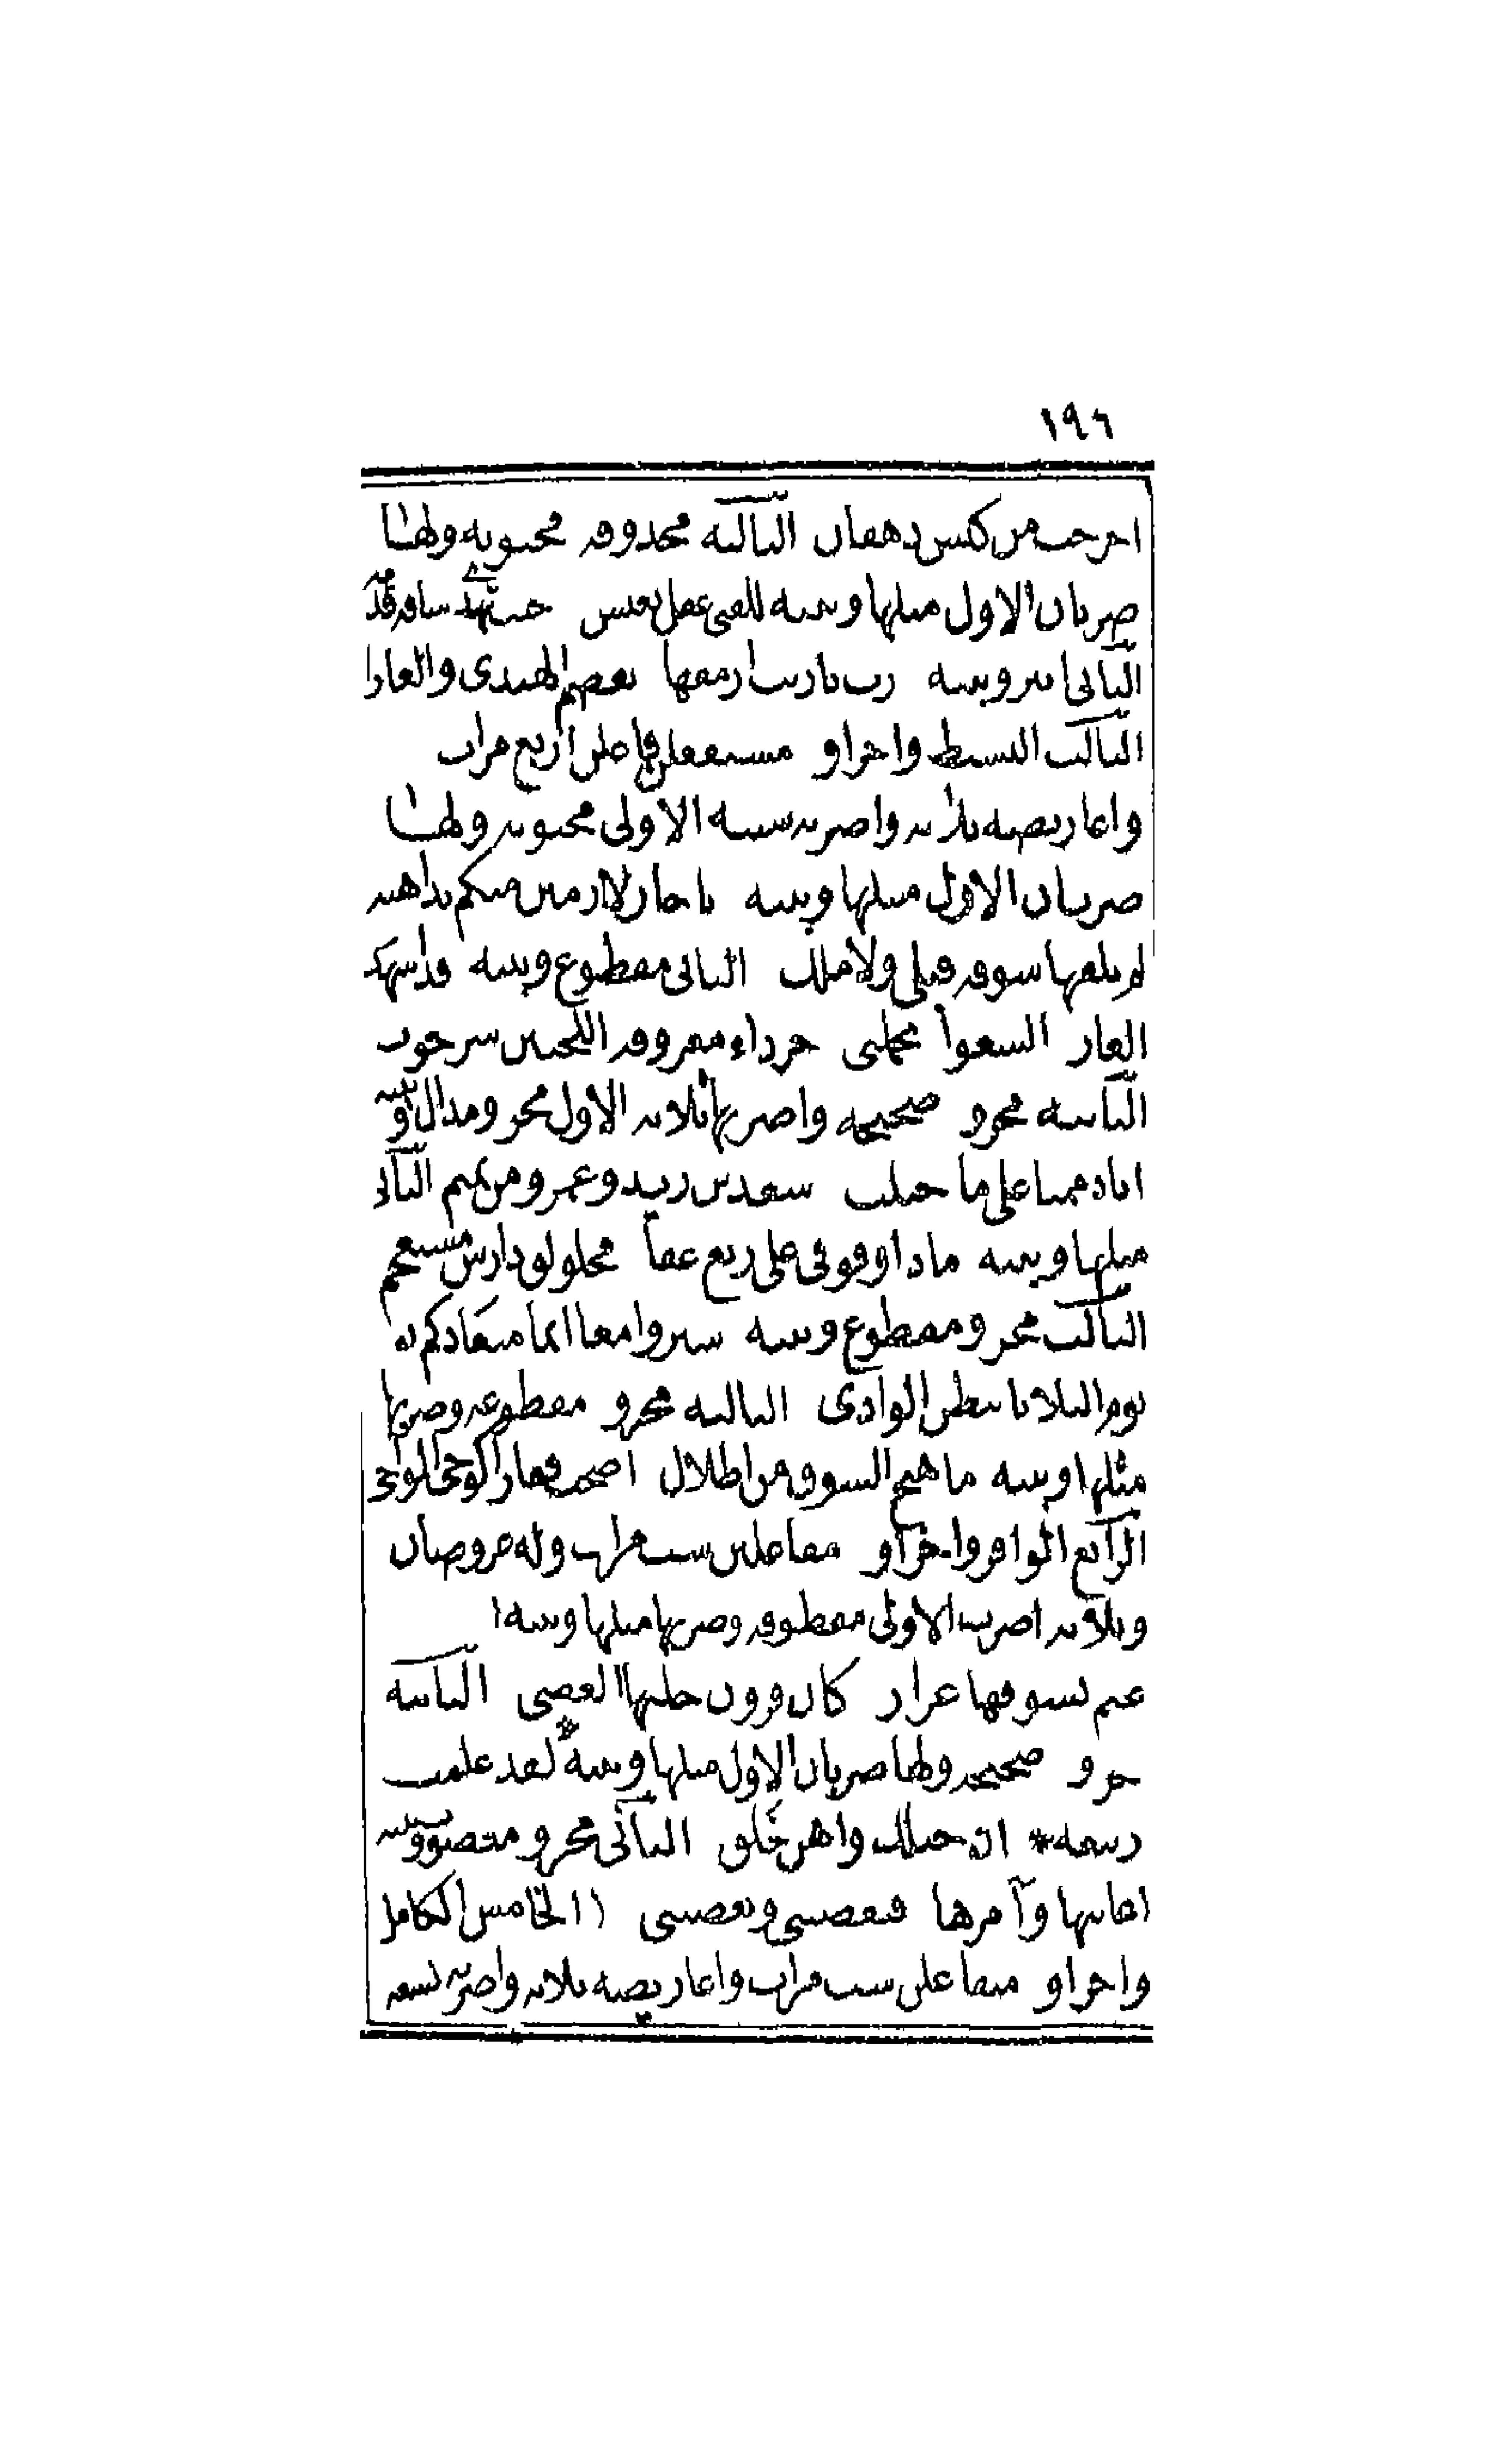 ١٩٦
اخرجت من كيس دهقان الثالثة محذوفة مخبونة ولها
ضربان الاول مثلها وبيته للفتى عقل يعيش حيث تهدى ساقه قدمه
الثاني ابتر وبيته رب نار بت ارمقها تقضم الهندي والغارا
الثالث البسيط واجزاؤه مستفعلن فاعلن اربع مرات
واعاريضه ثلاثة واضربه ستة الاولى مخبونة ولها
ضربان الاول مثلها وبيته يا حار لا ارمين منكم بداهية
لم يلقها سوقة قبلي ولا ملك الثاني مقطوع وبيته قد اشهد
الغارة الشعواء تحملني جرداء معروقة اللحيين سرحوب
الثانية مجزوة صحيحة واضربها ثلاثة الاول مجزو مذال وبيته
انا ذممنا على ما خيلت سعد بن زيد وعمرو من تميم الثاني
مثلها وبيته ماذا وقوفي على ربع عفا مخلولق دارس مستعجم
الثالث مجزو مقطوع وبيته سيروا معا انما ميعادكم
يوم الثلاثا بطن الوادي الثالثة مجزوة مقطوعة وضربها
مثلها وبيته ما هيج الشوق من اطلال اضحت قفارا كوحي الواحي
الرابع الوافر واجزاؤه مفاعلتن ست مرات وله عروضان
وثلاثة اضرب الاولى مقطوفة وضربها مثلها وبيته
غنم نسوقها غزار كان قرون جلتها العصي الثانية
مجزوة صحيحة ولها ضربان الاول مثلها وبيته لقد علمت
ربيعة * ان حبلك واهن خلق الثاني مجزو معصوب وبيته
اعاتبها وآمرها فتغضبني وتعصيني الخامس الكامل
واجزاؤه متفاعلن ست مرات واعاريضه ثلاثة واضربه تسعة